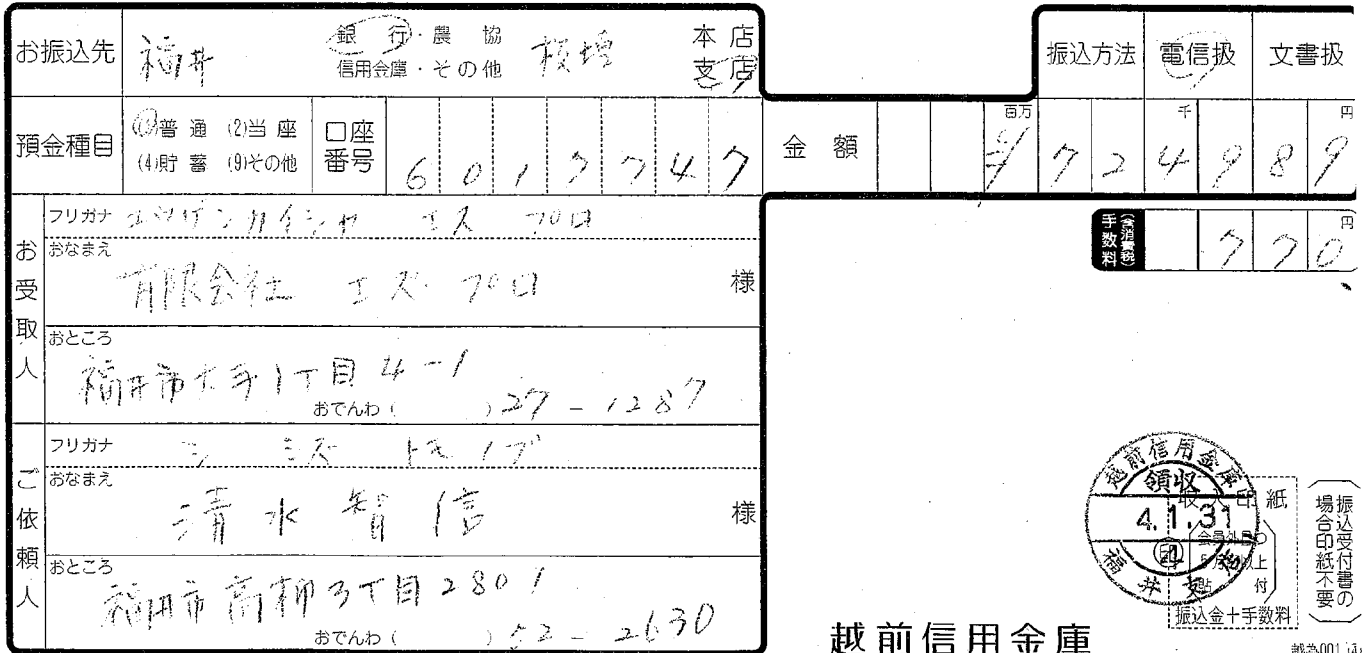 お振込先 福井 銀行・農協 板垣 本店
信用金庫・その他 支店
振込方法 電信扱 文書扱
預金種目 (1)普通 (2)当座
(4)貯蓄 (9)その他
口座番号 6017747
金額 百万 千 円
¥724989
手数料(含消費税) 円
770
お受取人
フリガナ ユウゲンカイシャ エス プロ
おなまえ
有限会社 エス プロ 様
おところ
福井市大手1丁目4-1
おでんわ( )27-1287
ご依頼人
フリガナ シミズ トモノブ
おなまえ
清水智信 様
おところ
福井市高柳3丁目2801
おでんわ( )52-2630
越前信用金庫
領収
4.1.31
印
福井支店
収入印紙
貼付
振込金+手数料
(振込受付書の場合印紙不要)
越前信用金庫